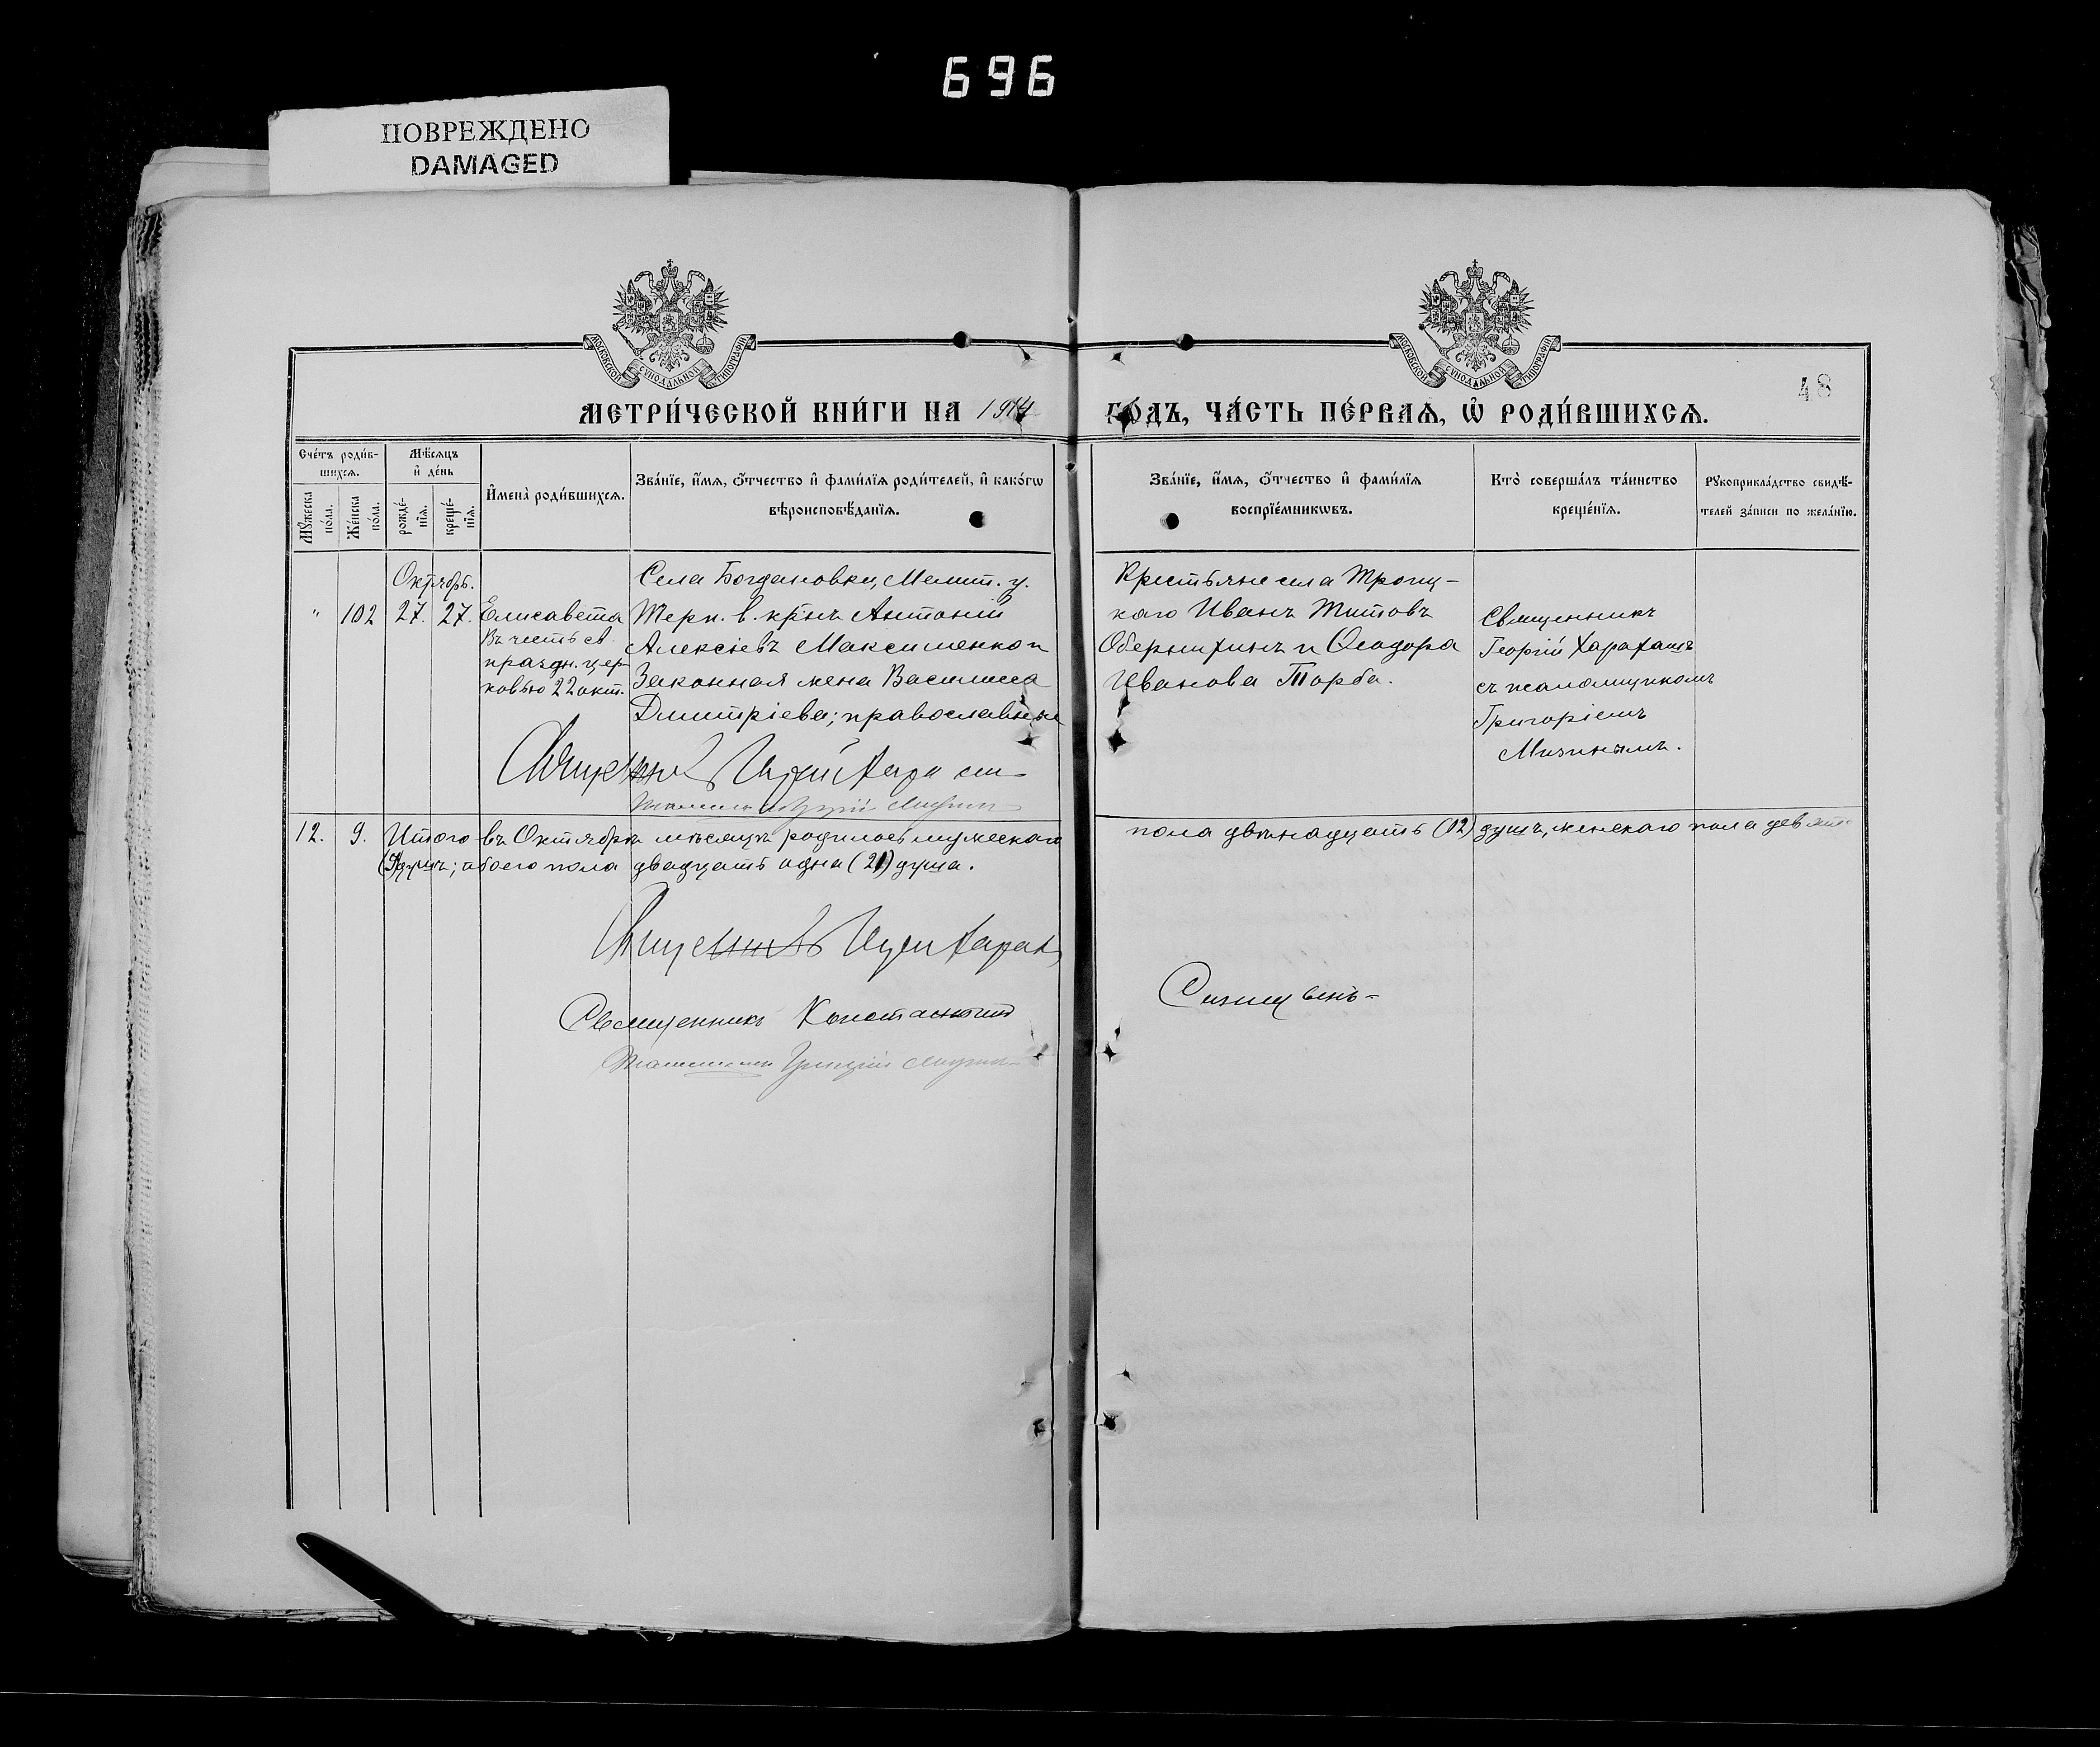 696
ПОВРЕЖДЕНО
DAMAGED
МОСКОВСКОЙ СѴНОДАЛЬНОЙ ТИПОГРАФІИ
МОСКОВСКОЙ СѴНОДАЛЬНОЙ ТИПОГРАФІИ
48
МЕТРИ́ЧЕСКОЙ КНИ́ГИ НА 1914 ГОДЪ, ЧА́СТЬ ПЕ́РВАѦ, Ѡ҆ РОДИ́ВШИХСѦ.
Сче́тъ роди́в-
шихсѧ.
Мꙋ́жеска по́ла.
Же́нска по́ла.
Мѣ́сѧцъ
и҆ де́нь
рожде́-
нїѧ.
креще́-
нїѧ.
И҆мена̀ роди́вшихсѧ.
Зва́нїе, и҆́мѧ, ѻ҆́тчество и҆ фами́лїѧ роди́телей, и҆ како́гѡ
вѣроисповѣ́данїѧ.
Зва́нїе, и҆́мѧ, ѻ҆́тчество и҆ фами́лїѧ
воспрїе́мникѡвъ.
Кто̀ соверша́лъ та́инство
креще́нїѧ.
Рꙋкоприкла́дство свидѣ́-
телей за́писи по жела́нїю.
Октябрь.
" 102 27. 27.
Елисавета
Въ честь св.
праздн. цер-
ковью 22 окт.
Села Богдановки, Мелит. у.
Терп. в. кр-нъ Антоній
Алексіевъ Максименко и
Законная жена Василиса
Димитріева; православные
Крестьяне села Троиц-
каго Иванъ Титовъ
Оберникинъ и Ѳеодора
Иванова Торба.
Священникъ
Георгій Харахашъ
съ псаломщикомъ
Григоріемъ
Мизинымъ.
12. 9. Итого въ Октябрѣ мѣсяцѣ родилось мужескаго пола двѣнадцать (12) душъ, женскаго пола девять
(9) душъ; обоего пола двадцать одна (21) душа.
Священникъ
Священникъ Константинъ